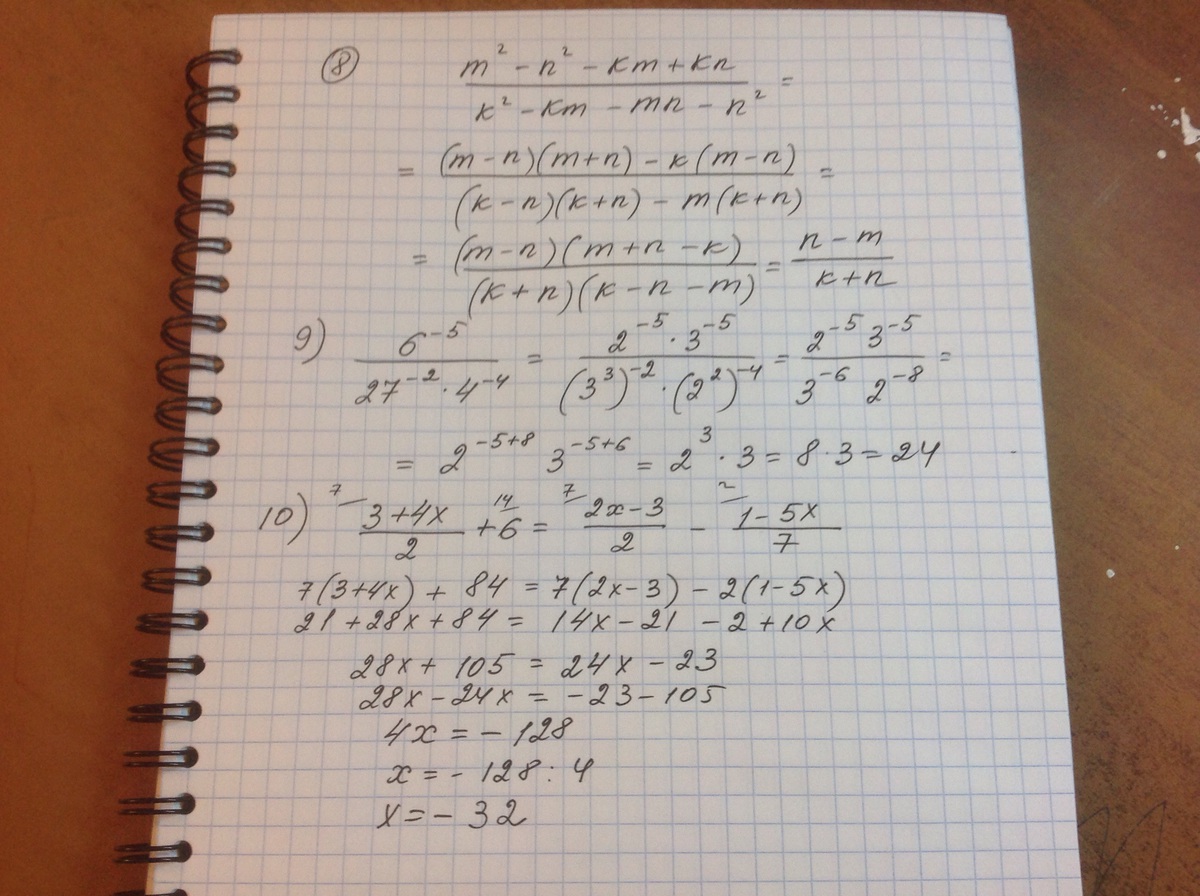 ⑧ (m² - n² - km + kn)/(k² - km - mn - n²) =
= ((m - n)(m + n) - k(m - n))/((k - n)(k + n) - m(k + n)) =
= ((m - n)(m + n - k))/((k + n)(k - n - m)) = (n - m)/(k + n)
9) 6⁻⁵/(27⁻² · 4⁻⁴) = (2⁻⁵ · 3⁻⁵)/((3³)⁻² · (2²)⁻⁴) = (2⁻⁵ 3⁻⁵)/(3⁻⁶ 2⁻⁸) =
= 2⁻⁵⁺⁸ 3⁻⁵⁺⁶ = 2³ · 3 = 8 · 3 = 24
10) ⁷⁄ (3 + 4x)/2 + ¹⁴⁄ 6 = ⁷⁄ (2x - 3)/2 - ²⁄ (1 - 5x)/7
7(3 + 4x) + 84 = 7(2x - 3) - 2(1 - 5x)
21 + 28x + 84 = 14x - 21 - 2 + 10x
28x + 105 = 24x - 23
28x - 24x = - 23 - 105
4x = - 128
x = - 128 : 4
x = - 32